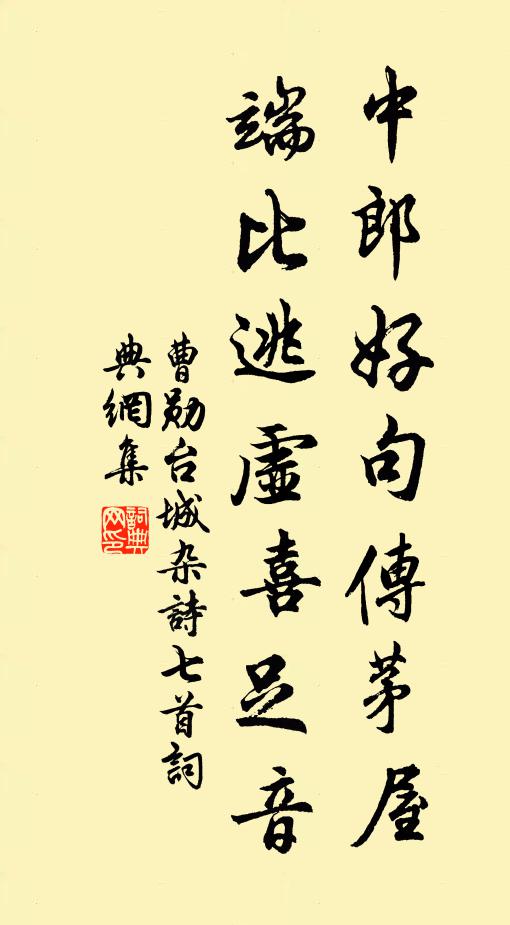 中郎好句傳茅屋
端比逃虛喜足音
曹勛台城杂詩七首詞
典網集
詞典网印